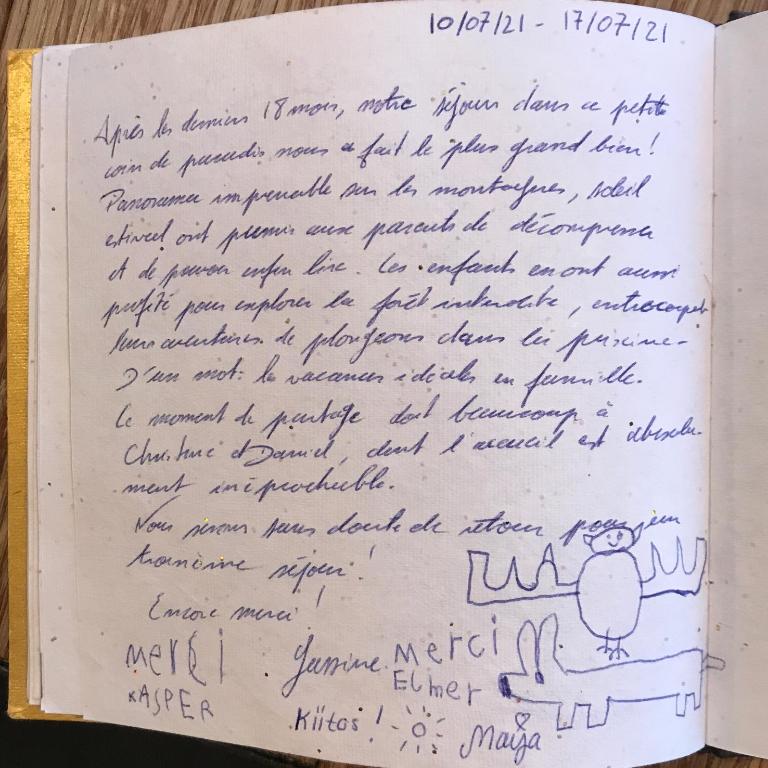 10/07/21 - 17/07/21
Après les derniers 18 mois, notre séjour dans ce petit
coin de paradis nous a fait le plus grand bien!
Panorama imprenable sur les montagnes, soleil
estival ont permis aux parents de décompresser
et de pouvoir enfin lire. Les enfants en ont aussi
profité pour explorer la forêt interdite, entrecoupé
leurs aventures de plongeons dans la piscine.
D'un mot: les vacances idéales en famille.
Ce moment de partage doit beaucoup à
Christine et Daniel, dont l'accueil est absolu-
ment irréprochable.
Nous serons sans doute de retour pour un
troisième séjour!
Encore merci!
merci Yassine merci
KASPER Elmer
Kiitos! Maija